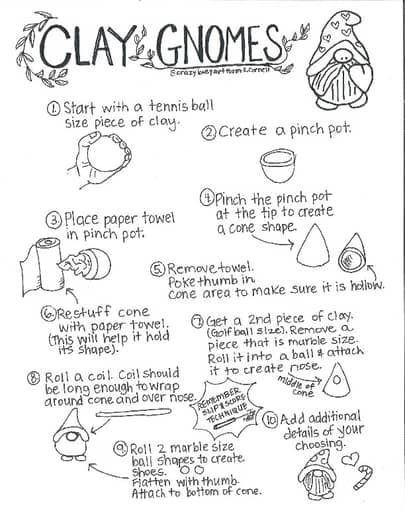 CLAY GNOMES
① Start with a tennis ball
size piece of clay.
② Create a pinch pot.
③ Place paper towel
in pinch pot.
④ Pinch the pinch pot
at the tip to create
a cone shape.
⑤ Remove towel.
Poke thumb in
cone area to make sure it is hollow.
⑥ Restuff cone
with paper towel.
(This will help it hold
its shape).
⑦ Get a 2nd piece of clay.
(Golf ball size). Remove a
piece that is marble size.
Roll it into a ball & attach
it to create nose.
middle of
cone
⑧ Roll a coil. Coil should
be long enough to wrap
around cone and over nose.
REMEMBER
SLIP & SCORE
TECHNIQUE
⑨ Roll 2 marble size
ball shapes to create
shoes.
Flatten with thumb.
Attach to bottom of cone.
⑩ Add additional
details of your
choosing.